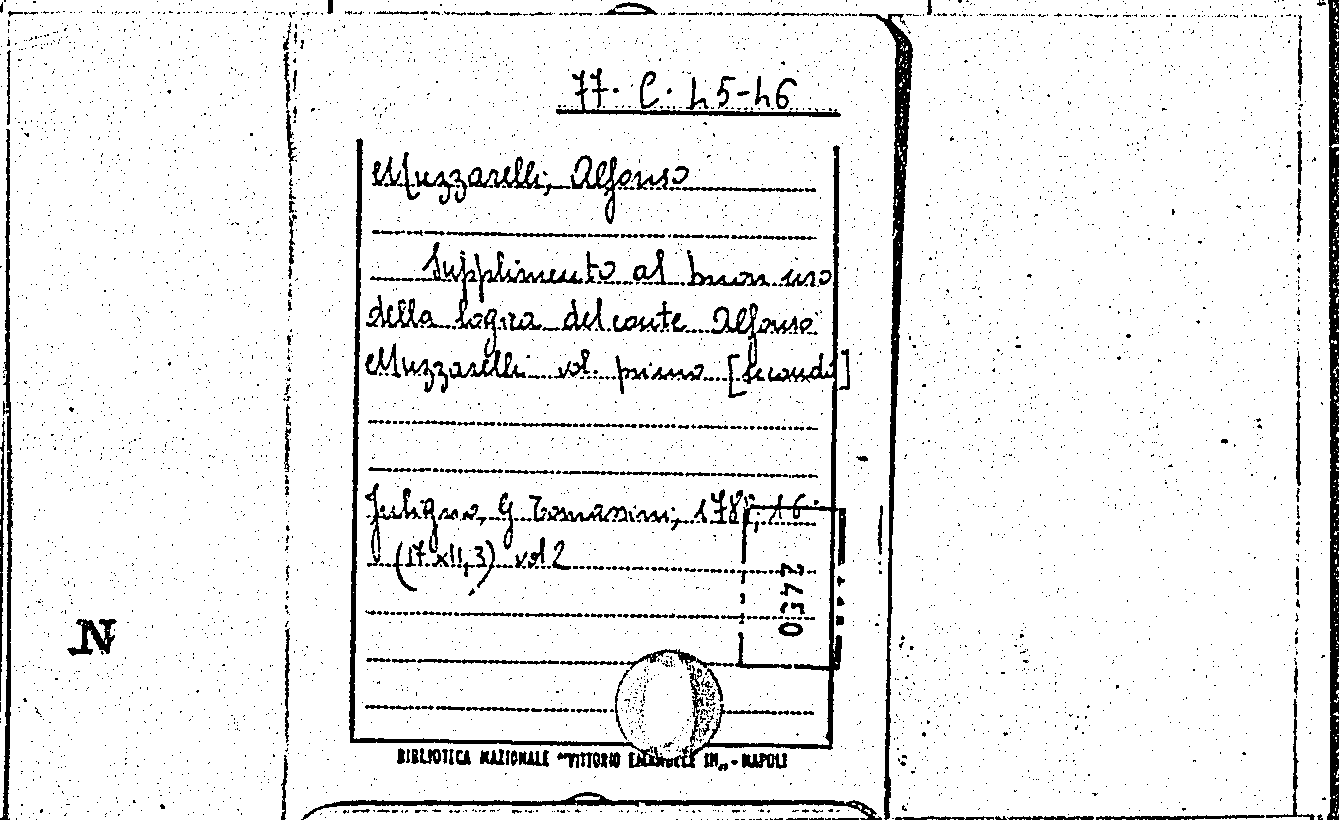 77. C. 45-46
Muzzarelli, Alfonso
Supplimento al buon uso
della logica del conte Alfonso
Muzzarelli vol. primo [secondo]
Fuligno, G Tomassini, 178 ; 16°
(17 XII, 3) vol 2
2450
N
BIBLIOTECA NAZIONALE "VITTORIO EMANUELE III„ - NAPOLI